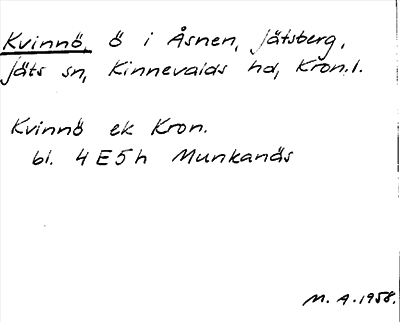 Kvinnö, ö i Åsnen, Jätsberg,
Jäts sn, Kinnevalds hd, Kron.l.
Kvinnö ek Kron.
bl. 4E5h Munkanäs
M. A. 1958.